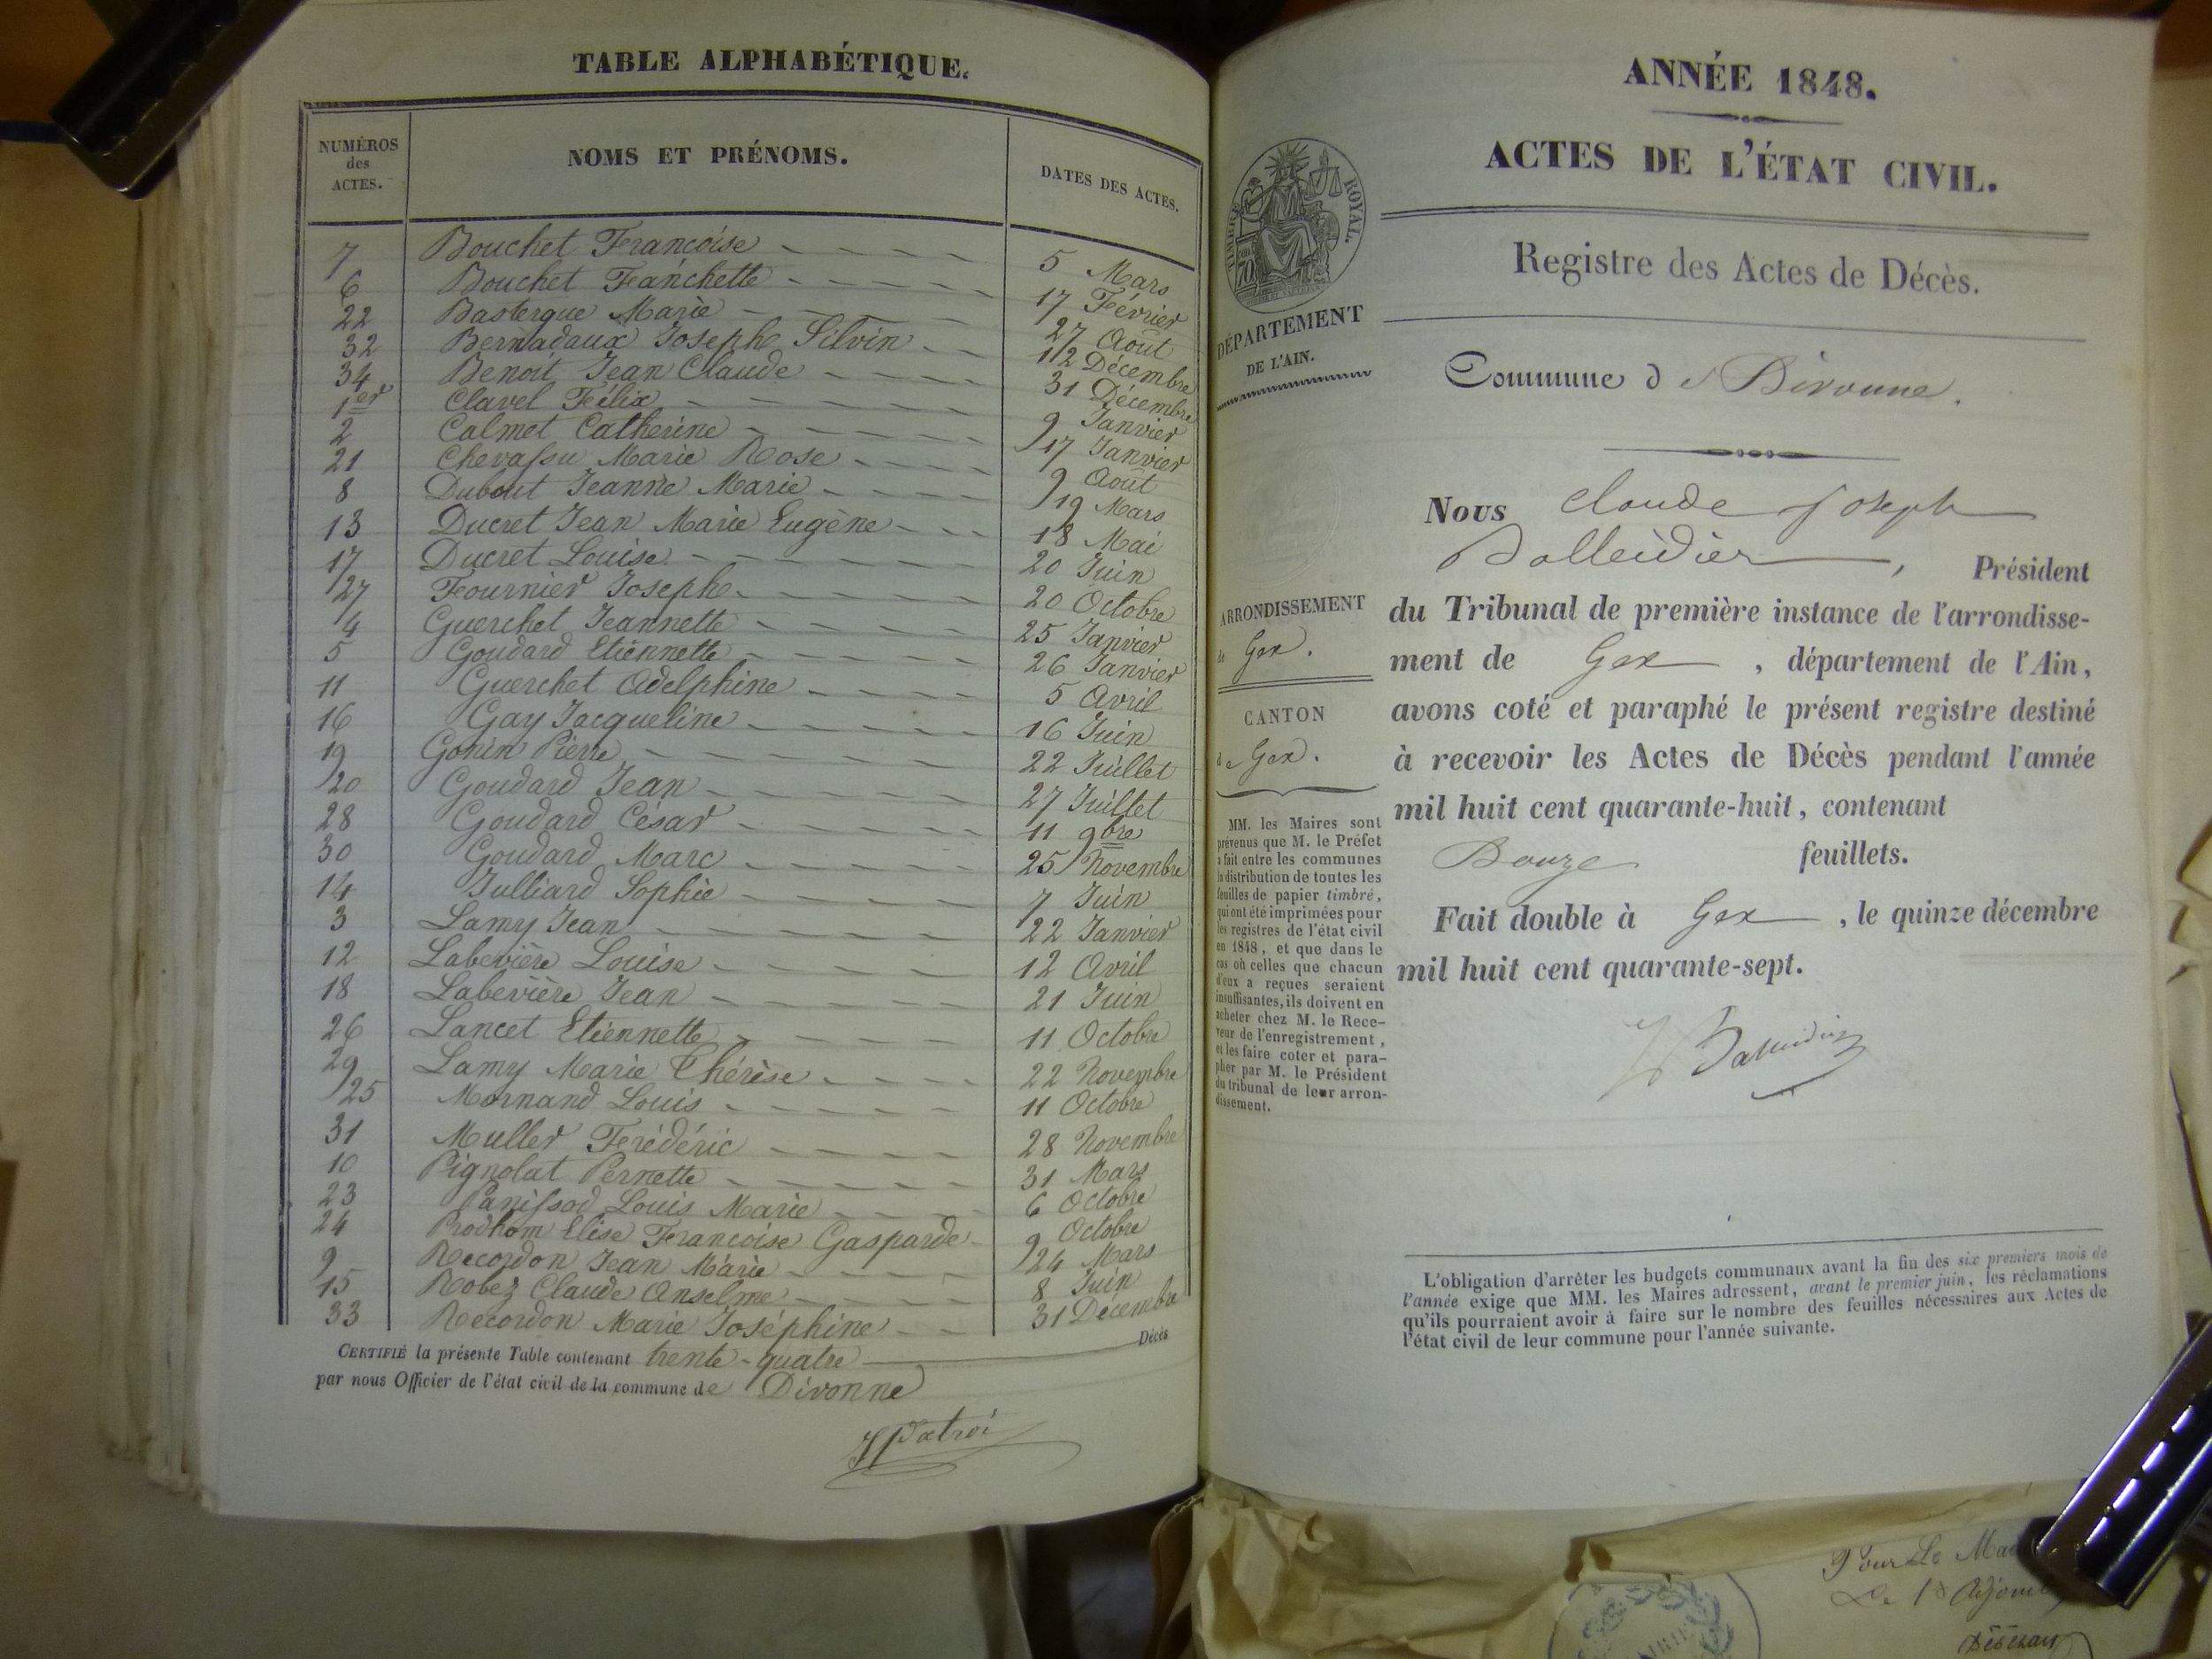 TABLE ALPHABÉTIQUE.
NUMÉROS des ACTES. NOMS ET PRÉNOMS. DATES DES ACTES.
7 Bouchet Françoise 5 Mars
6 Bouchet Franchette 17 Février
22 Bastergue Marie 27 Août
32 Bernadaux Joseph Silvin 12 Décembre
34 Benoit Jean Claude 31 Décembre
1er Clavel Félix 9 Janvier
2 Calmet Catherine 17 Janvier
21 Chevassu Marie Rose 9 Août
8 Dubout Jeanne Marie 19 Mars
13 Ducret Jean Marie Eugène 18 Mai
17 Ducret Louise 20 Juin
27 Fournier Joseph 20 Octobre
4 Guerchet Jeannette 25 Janvier
5 Goudard Etiennette 26 Janvier
11 Guerchet Adelphine 5 Avril
16 Gay Jacqueline 16 Juin
19 Gonin Pierre 22 Juillet
20 Goudard Jean 27 Juillet
28 Goudard César 11 9bre
30 Goudard Marc 25 Novembre
14 Julliard Sophie 7 Juin
3 Lamy Jean 22 Janvier
12 Labevière Louise 12 Avril
18 Labevière Jean 21 Juin
26 Lancet Etiennette 11 Octobre
29 Lamy Marie Thérèse 22 Novembre
25 Mornand Louis 11 Octobre
31 Muller Frédéric 28 Novembre
10 Pignolat Pernette 31 Mars
23 Panissod Louis Marie 6 Octobre
24 Prodhom Elise Françoise Gasparde 9 Octobre
9 Recordon Jean Marie 24 Mars
15 Robez Claude Anselme 8 Juin
33 Recordon Marie Joséphine 31 Décembre
CERTIFIÉ la présente Table contenant trente-quatre Décès
par nous Officier de l'état civil de la commune de Divonne
ANNÉE 1848.
ACTES DE L'ÉTAT CIVIL.
Registre des Actes de Décès.
TIMBRE ROYAL.
70
DÉPARTEMENT
DE L'AIN.
Commune de Divonne.
ARRONDISSEMENT
de Gex.
CANTON
de Gex.
MM. les Maires sont
prévenus que M. le Préfet
a fait entre les communes
la distribution de toutes les
feuilles de papier timbré,
qui ont été imprimées pour
les registres de l'état civil
en 1848, et que dans le
cas où celles que chacun
d'eux a reçues seraient
insuffisantes, ils doivent en
acheter chez M. le Rece-
veur de l'enregistrement,
et les faire coter et para-
pher par M. le Président
du tribunal de leur arron-
dissement.
Nous Claude Joseph
Balleidier, Président
du Tribunal de première instance de l'arrondisse-
ment de Gex, département de l'Ain,
avons coté et paraphé le présent registre destiné
à recevoir les Actes de Décès pendant l'année
mil huit cent quarante-huit, contenant
Douze feuillets.
Fait double à Gex, le quinze décembre
mil huit cent quarante-sept.
Balleidier
L'obligation d'arrêter les budgets communaux avant la fin des six premiers mois de
l'année exige que MM. les Maires adressent, avant le premier juin, les réclamations
qu'ils pourraient avoir à faire sur le nombre des feuilles nécessaires aux Actes de
l'état civil de leur commune pour l'année suivante.
Pour Le